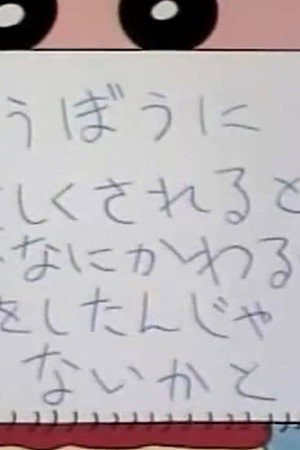 うぼうに
しくされると
なにかわる
をしたんじゃ
ないかと